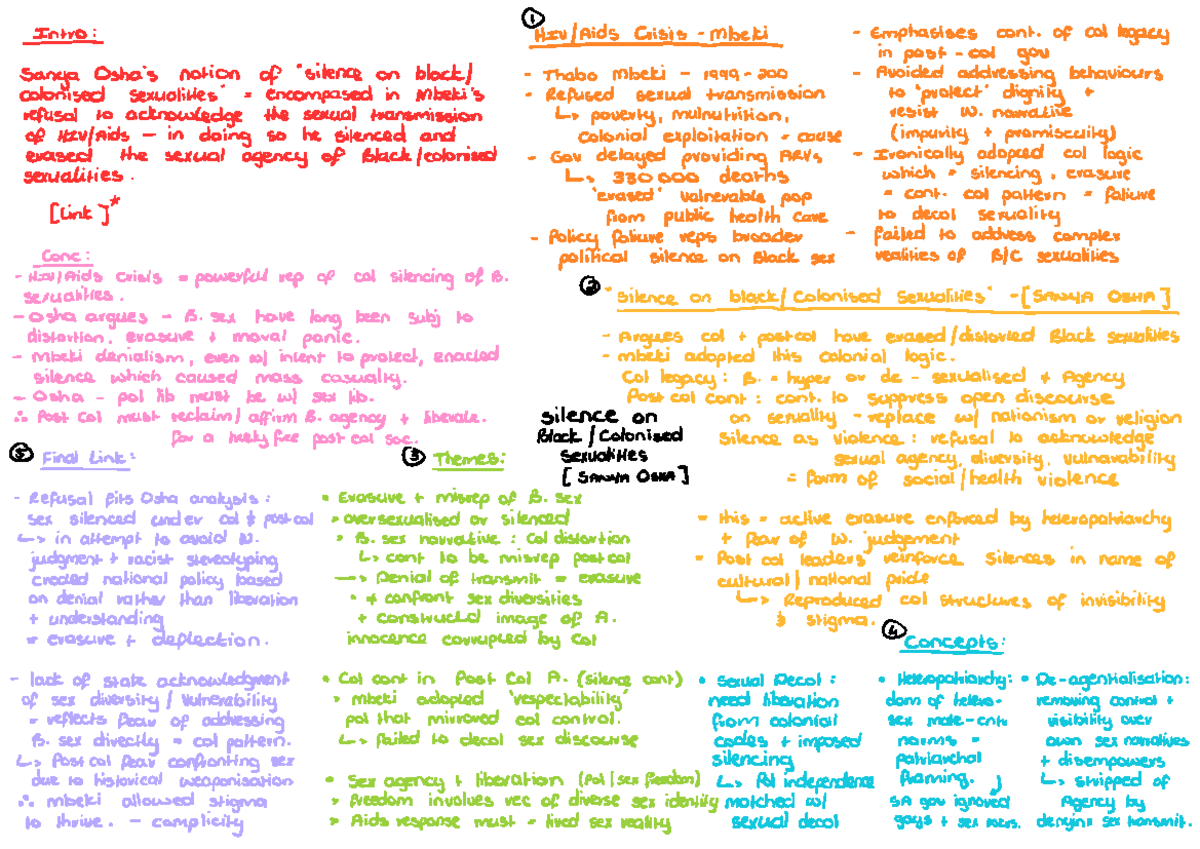 Intro:
Sanya Osha's notion of "silence on black/
colonised sexualities" = encompased in Mbeki's
refusal to acknowledge the sexual transmission
of HIV/Aids – in doing so he silenced and
erased the sexual agency of Black/colonised
sexualities.
[Link]*
Conc:
- HIV/Aids Crisis = powerful rep of col silencing of B.
sexualities.
- Osha argues - B. sex have long been subj to
distortion, erasure + moral panic.
- Mbeki denialism, even w/ intent to protect, enacted
silence which caused mass casualty.
- Osha - pol lib must be w/ sex lib.
∴ Post Col must reclaim/affirm B. agency + liberate.
for a truly free post col soc.
① HIV/Aids Crisis - Mbeki
- Thabo Mbeki - 1999-200
- Refused sexual transmission
↳ poverty, mulnutrition,
colonial exploitation = cause
- Gov delayed providing ARVs
↳ 330 000 deaths
'erased' vulnerable pop
from public health care
- Policy failure reps broader
political silence on Black sex
- Emphasises cont. of col legacy
in post-col gov
- Avoided addressing behaviours
to 'protect' dignity +
resist W. narrative
(impurity + promiscuity)
- Ironically adopted col logic
which = silencing, erasure
= cont. col pattern = failure
to decol sexuality
- failed to address complex
realities of B/C sexualities
② "Silence on black/Colonised Sexualities" - [SANYA OSHA]
- Argues col + postcol have erased/distorted Black sexualities
- mbeki adopted this colonial logic.
Col legacy: B. = hyper or de-sexualised + Agency
Post col cont: cont. to suppress open discourse
on sexuality - replace w/ nationism or religion
Silence as violence: refusal to acknowledge
sexual agency, diversity, vulnarability
= form of social/health violence
= this = active erasure enforced by heteropatriarchy
+ fear of W. judgement
= Post col leaders reinforce silences in name of
cultural/national pride
↳ Reproduced col structures of invisibility
& stigma.
silence on
Black/Colonised
Sexualities
[SANYA OSHA]
③ Themes:
• Erasure + misrep of B. sex
> oversexualised or silenced
> B. sex narrative: Col distortion
↳ cont to be misrep postcol
—> Denial of transmit = erasure
• ≠ confront sex diversities
+ constructed image of A.
innocence corrupted by Col
• Col cont in Post Col A. (silence cont)
> mbeki adopted 'respectability'
pol that mirrored col control.
↳ failed to decol sex discourse
• Sex agency + liberation (Pol/sex freedom)
> freedom involves rec of diverse sex identity
> Aids response must = lived sex reality
④ Concepts:
• Sexual Decol:
need liberation
from colonial
codes + imposed
silencing
↳ Pol independence
matched w/
sexual decol
• Heteropatriarchy:
dom of hetero-
sex male-cntr
norms =
patriarchal
framing.
SA gov ignored
gays + sex
• De-agentialisation:
removing control +
visibility over
own sex narratives
+ disempowers
↳ stripped of
Agency by
denying sex transmit.
⑤ Final Link:
- Refusal fits Osha analysis:
sex silenced under col & postcol
↳ in attempt to avoid W.
judgment + racist stereotyping
created national policy based
on denial rather than liberation
+ understanding
= erasure + deflection.
- lack of state acknowledgment
of sex diversity / Vulnerability
= reflects fear of addressing
B. sex directly = col pattern.
↳ Post col fear confronting sex
due to historical weaponisation
∴ mbeki allowed stigma
to thrive. - complicity